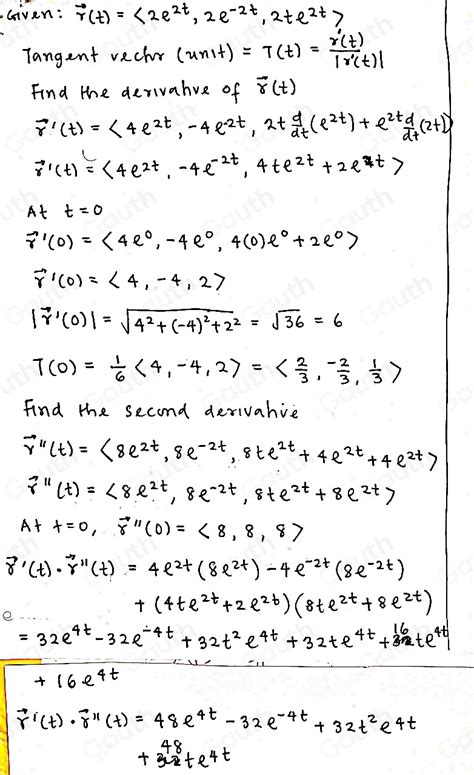 Given: r⃗(t) = <2e^{2t}, 2e^{-2t}, 2te^{2t}>
Tangent vechr (unit) = T(t) = r'(t)/|r'(t)|
Find the derivahve of r⃗(t)
r⃗'(t) = <4e^{2t}, -4e^{-2t}, 2t d/dt(e^{2t}) + e^{2t} d/dt(2t)>
r⃗'(t) = <4e^{2t}, -4e^{-2t}, 4te^{2t} + 2e^{2t}>
At t=0
r⃗'(0) = <4e⁰, -4e⁰, 4(0)e⁰ + 2e⁰>
r⃗'(0) = <4, -4, 2>
|r⃗'(0)| = √(4²+(-4)²+2²) = √36 = 6
T(0) = 1/6 <4, -4, 2> = <2/3, -2/3, 1/3>
Find the second derivahve
r⃗"(t) = <8e^{2t}, 8e^{-2t}, 8te^{2t} + 4e^{2t} + 4e^{2t}>
r⃗"(t) = <8e^{2t}, 8e^{-2t}, 8te^{2t} + 8e^{2t}>
At t=0, r⃗"(0) = <8, 8, 8>
r⃗'(t)·r⃗"(t) = 4e^{2t}(8e^{2t}) - 4e^{-2t}(8e^{-2t})
+ (4te^{2t} + 2e^{2t})(8te^{2t} + 8e^{2t})
= 32e^{4t} - 32e^{-4t} + 32t²e^{4t} + 32te^{4t} + 16te^{4t}
+ 16e^{4t}
r⃗'(t)·r⃗"(t) = 48e^{4t} - 32e^{-4t} + 32t²e^{4t}
+ 48te^{4t}